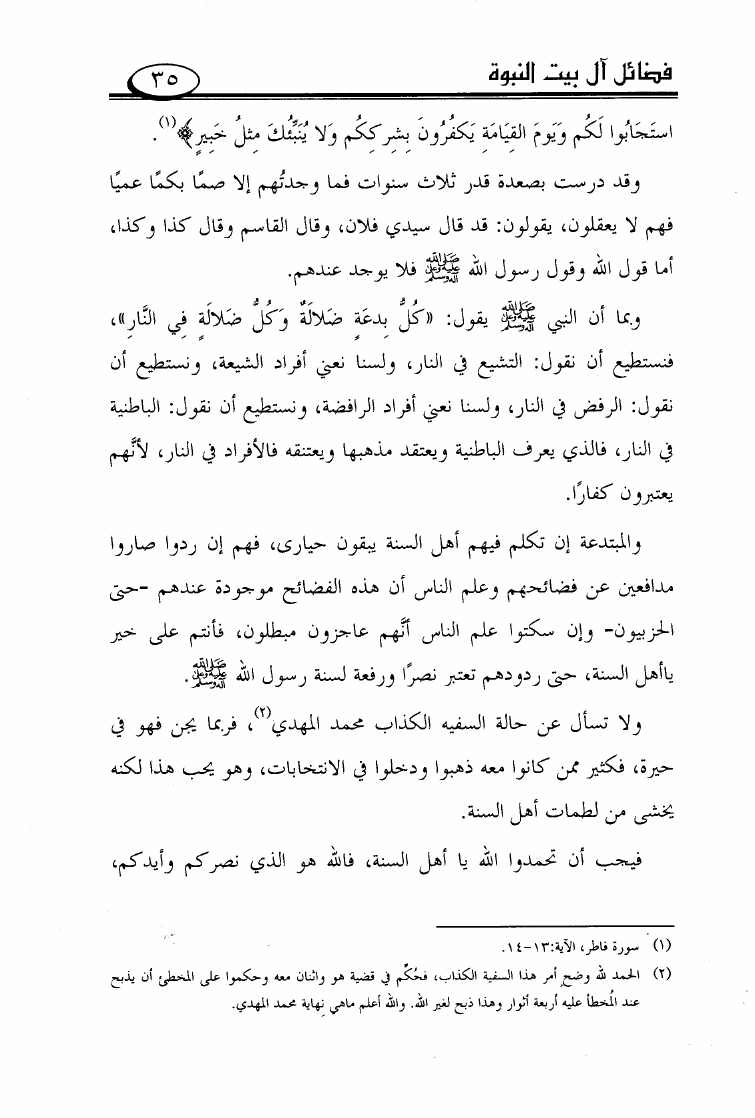 فضائل آل بيت النبوة
٣٥
استَجَابُوا لَكُم وَيَومَ القِيَامَةِ يَكفُرُونَ بِشِركِكُم وَلا يُنَبِّئُكَ مِثلُ خَبِيرٍ﴾(١).
وقد درست بصعدة قدر ثلاث سنوات فما وجدتُهم إلا صمًّا بكمًا عميًا
فهم لا يعقلون، يقولون: قد قال سيدي فلان، وقال القاسم وقال كذا وكذا،
أما قول الله وقول رسول الله ﷺ فلا يوجد عندهم.
وبما أن النبي ﷺ يقول: «كُلُّ بِدعَةٍ ضَلالَةٌ وَكُلُّ ضَلالَةٍ فِي النَّارِ»،
فنستطيع أن نقول: التشيع في النار، ولسنا نعني أفراد الشيعة، ونستطيع أن
نقول: الرفض في النار، ولسنا نعني أفراد الرافضة، ونستطيع أن نقول: الباطنية
في النار، فالذي يعرف الباطنية ويعتقد مذهبها ويعتنقه فالأفراد في النار، لأنَّهم
يعتبرون كفارًا.
والمبتدعة إن تكلم فيهم أهل السنة يبقون حيارى، فهم إن ردوا صاروا
مدافعين عن فضائحهم وعلم الناس أن هذه الفضائح موجودة عندهم -حتى
الحزبيون- وإن سكتوا علم الناس أنَّهم عاجزون مبطلون، فأنتم على خير
ياأهل السنة، حتى ردودهم تعتبر نصرًا ورفعة لسنة رسول الله ﷺ.
ولا تسأل عن حالة السفيه الكذاب محمد المهدي(٢)، فربما يجن فهو في
حيرة، فكثير ممن كانوا معه ذهبوا ودخلوا في الانتخابات، وهو يحب هذا لكنه
يخشى من لطمات أهل السنة.
فيجب أن تحمدوا الله يا أهل السنة، فالله هو الذي نصركم وأيدكم،
(١) سورة فاطر، الآية:١٣-١٤.
(٢) الحمد لله وضح أمر هذا السفيه الكذاب، فحُكِّم في قضية هو واثنان معه وحكموا على المخطئ أن يذبح
عند المُخطأ عليه أربعة أثوار وهذا ذبح لغير الله. والله أعلم ماهي نِهاية محمد المهدي.